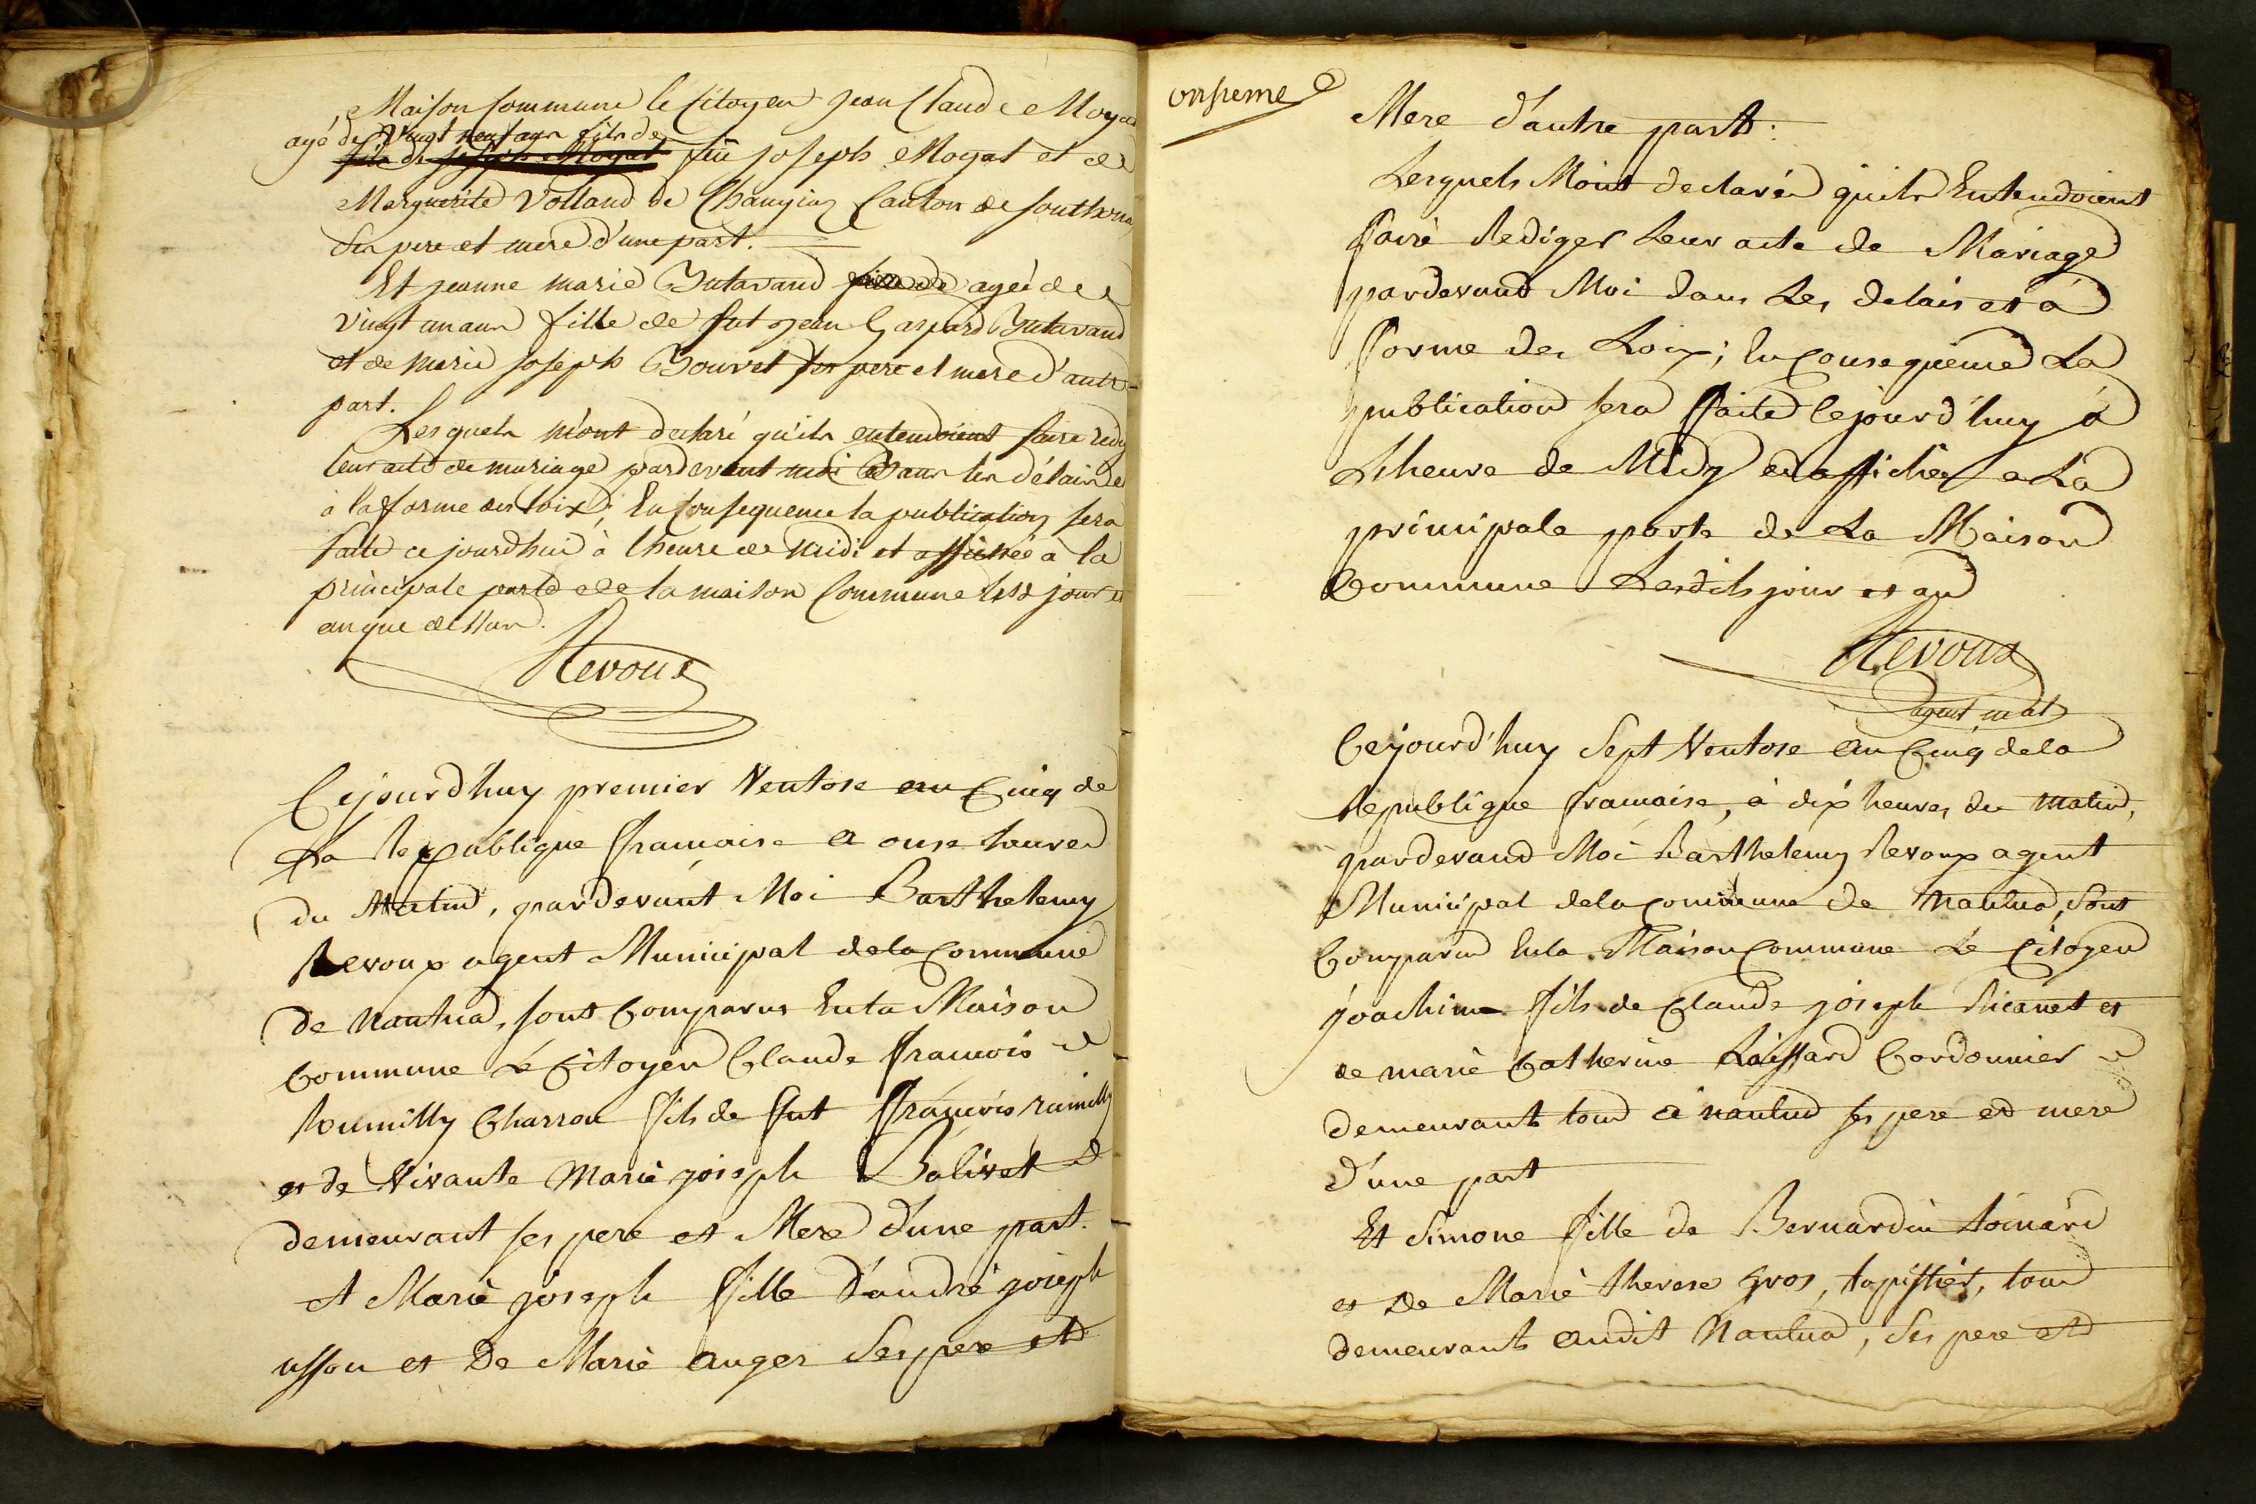 Maison Commune le Citoyen Jean Claude Mogat
agé de Vingt neuf ans fils de
fils de joseph Mogat feu joseph Mogat et de
Marguerite Volland de Champing Canton de
ses pere et mere d'une part.
Et jeanne marie Butavand fille de agée de
vingt un ans fille de fut jean Gaspard Butavand
et de marie joseph Bouvet ses pere et mere d'autre
part.
Lesquels m'ont declaré qu'ils entendoient faire redig
leur acte de mariage pardevant moi dans les délais et
à la forme des loix; En Consequence la publication sera
faite ce jourdhui à lheure de midi et affichée à la
principale porte de la maison Commune lesd jour et
an que dessus.
Revoux
Cejourd'huy premier Ventose an Cinq de
La Republique francaise a onse heures
du Matin, pardevant Moi Barthelemy
Revoux agent Municipal de la Commune
de Nantua, sont Comparus En la Maison
Commune Le Citoyen Claude francois
Roumilly Charron fils de fut francois rumilly
et de Vivante Marie joseph Balivet
demeurant ses pere et Mere d'une part.
et Marie joseph fille d'andré joseph
usson et De Marie auger Ses pere et
onsieme
Mere d'autre part:
Lesquels Mont declarés quils Entendoient
faire Rediger Leur acte de Mariage
pardevand Moi dans Les delais et a
forme des Loix; En Consequence La
publication sera faite Cejourd'huy à
Lheure de Midy et affichée a La
principale porte de La Maison
Commune Lesdits jour et an
Revoux
agent mal
Cejourd'huy Sept Ventose an Cinq de la
Republique francaise, à dix heures du matin,
pardevand Moi Barthelemy Revoux agent
Municipal de la Commune de Nantua, Sont
Comparus En la Maison Commune Le Citoyen
joachim fils de Claude joseph Picanet et
de marie Catherine Laissard Cordonnier
demeurant tous à nantua ses pere et mere
d'une part
Et Simone fille de Bernardin Loinard
et De Marie therese gros, tapissier, tous
demeurants audit Nantua, Ses pere et